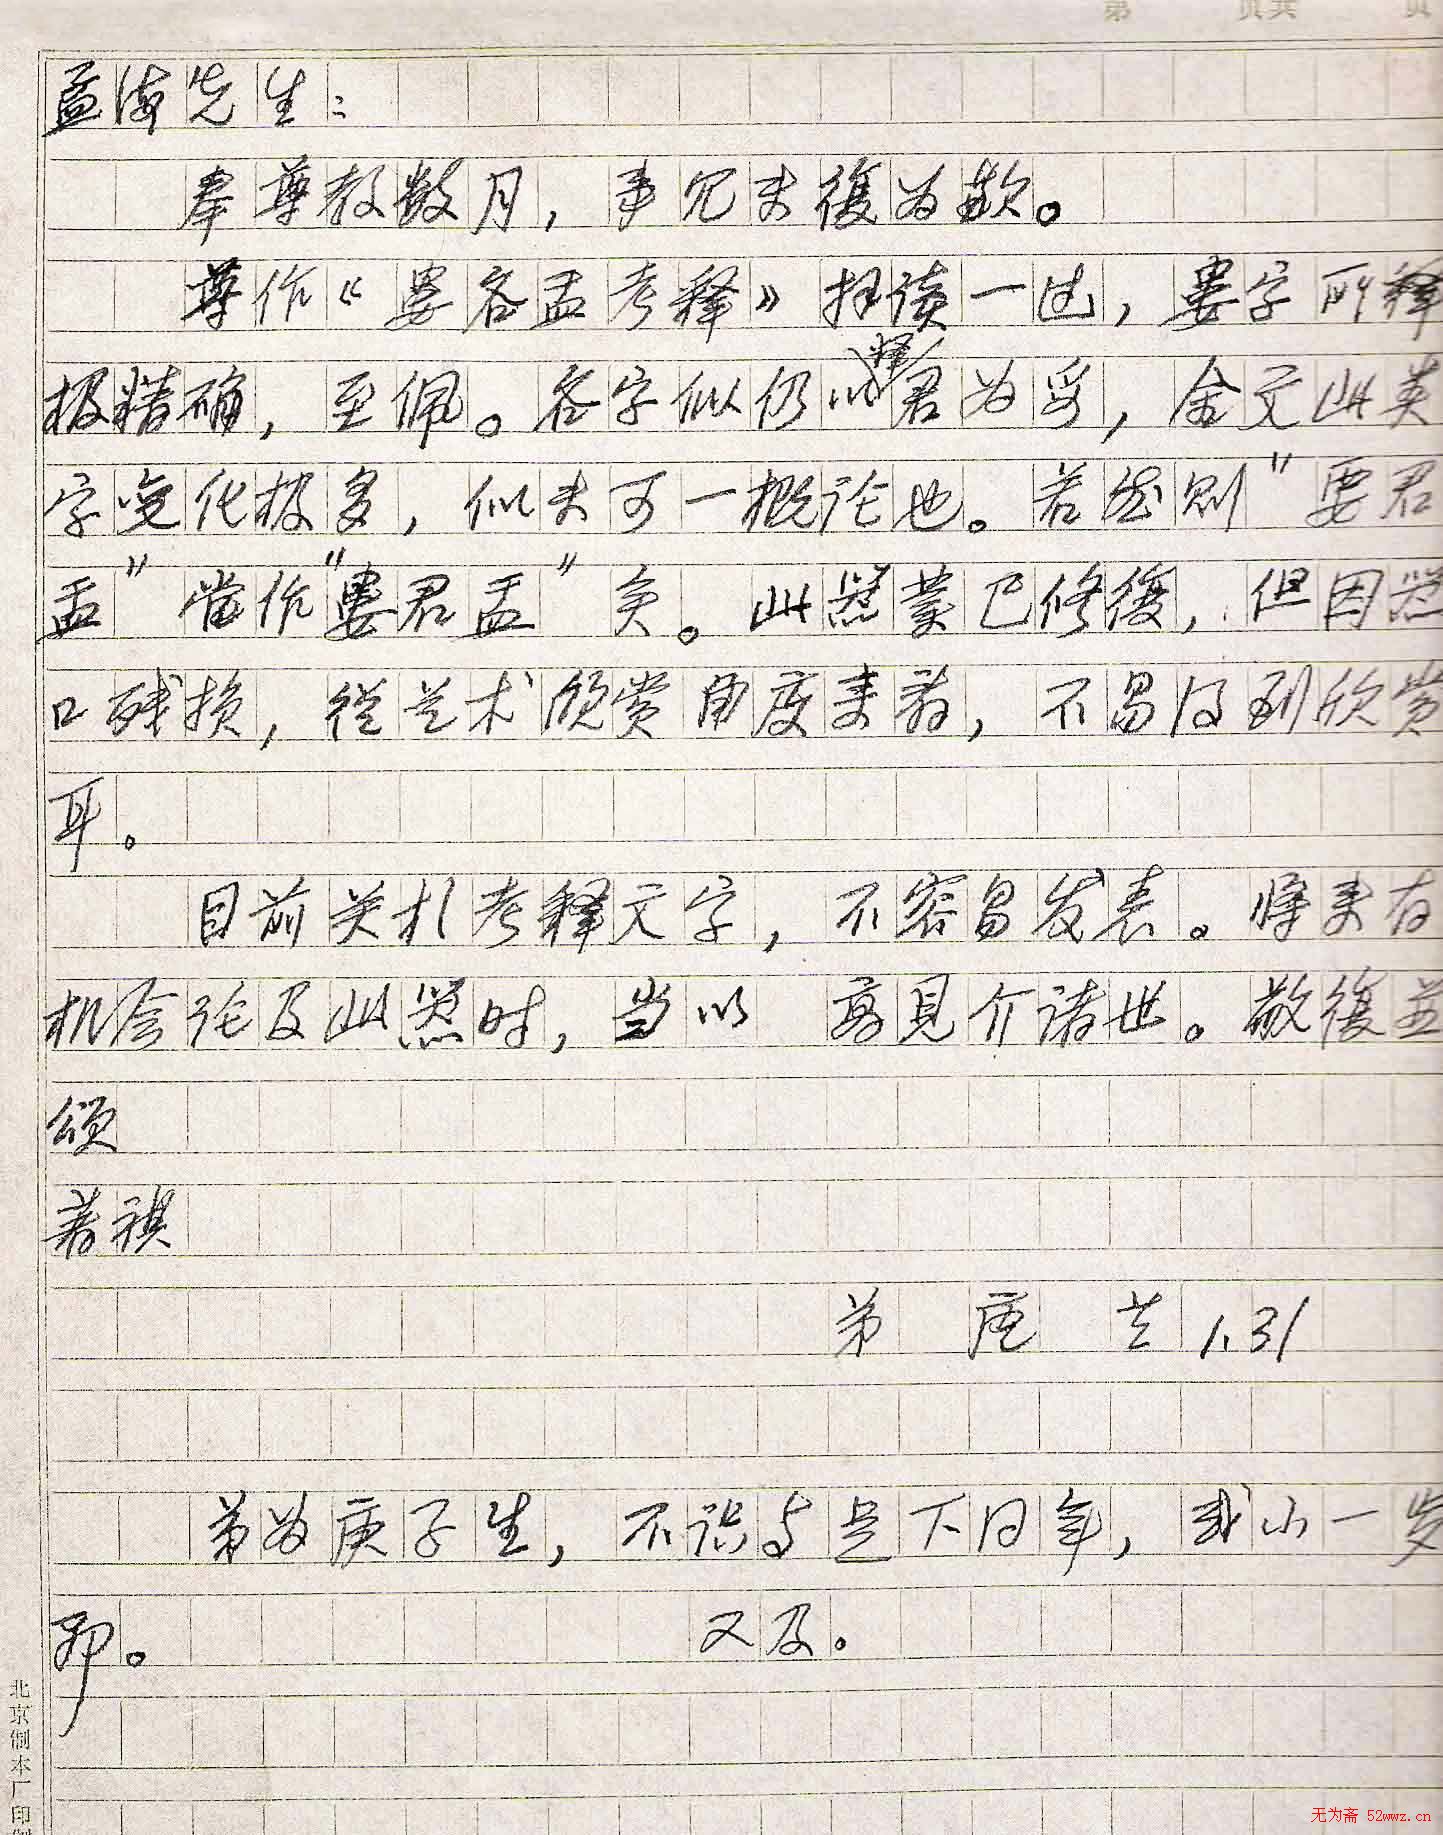 第 页共 页
孟海先生：
奉尊教数月，事冗未復为歉。
尊作《娄各盂考释》拜读一过，娄字所释
极精确，至佩。各字似仍以释君为妥，金文此类
字变化极多，似未可一概论也。若然则"要君
盂"当作"娄君盂"矣。此器业已修復，但因器
口残损，従艺术欣赏角度来看，不易得到欣赏
耳。
目前关于考释文字，不容易发表。将来有
机会论及此器时，当以 高見介诸世。敬復並
颂
著祺
弟 唐兰 1.31
弟为庚子生，不识与足下同年，或小一岁
耶。 又及。
北京制本厂印制
无为斋 52wwz.cn